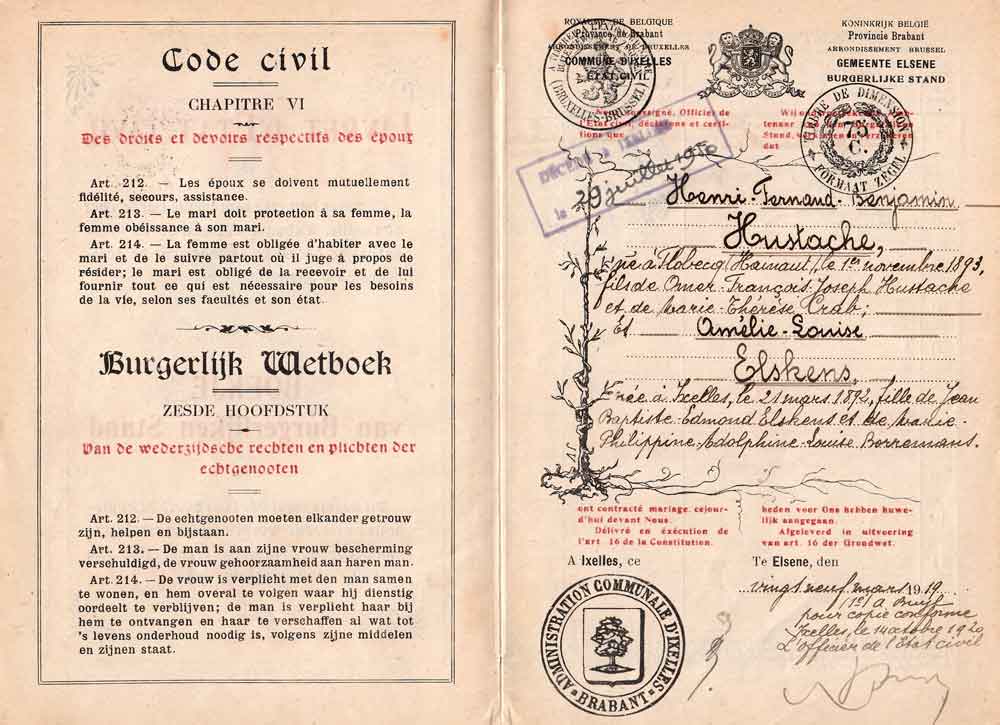 Code civil
CHAPITRE VI
Des droits et devoirs respectifs des époux
Art. 212. — Les époux se doivent mutuellement
fidélité, secours, assistance.
Art. 213. — Le mari doit protection à sa femme, la
femme obéissance à son mari.
Art. 214. — La femme est obligée d'habiter avec le
mari et de le suivre partout où il juge à propos de
résider; le mari est obligé de la recevoir et de lui
fournir tout ce qui est nécessaire pour les besoins
de la vie, selon ses facultés et son état.
Burgerlijk Wetboek
ZESDE HOOFDSTUK
Van de wederzijdsche rechten en plichten der
echtgenooten
Art. 212. — De echtgenooten moeten elkander getrouw
zijn, helpen en bijstaan.
Art. 213. — De man is aan zijne vrouw bescherming
verschuldigd, de vrouw gehoorzaamheid aan haren man.
Art. 214. — De vrouw is verplicht met den man samen
te wonen, en hem overal te volgen waar hij dienstig
oordeelt te verblijven; de man is verplicht haar bij
hem te ontvangen en haar te verschaffen al wat tot
's levens onderhoud noodig is, volgens zijne middelen
en zijnen staat.
ROYAUME DE BELGIQUE
Province de Brabant
ARRONDISSEMENT DE BRUXELLES
COMMUNE D'IXELLES
ETAT CIVIL
(BRUXELLES-BRUSSEL)
KONINKRIJK BELGIË
Provincie Brabant
ARRONDISSEMENT BRUSSEL
GEMEENTE ELSENE
BURGERLIJKE STAND
TIMBRE DE DIMENSION
75
C.
FORMAAT ZEGEL
Officier de
l'Etat civil, déclarons et certi-
fions que
Wij
Stand,
dat
29 juillet 1950
Henri-Fernand-Benjamin
Hustache,
né à Flobecq (Hainaut), le 1er novembre 1893,
fils de Omer-François-Joseph Hustache
et de Marie-Thérèse Crab;
Et Amélie-Louise
Elskens,
née à Ixelles, le 21 mars 1892, fille de Jean
Baptiste-Edmond Elskens et de Marie-
Philippine-Adolphine-Louise Borremans.
ont contracté mariage, cejour-
d'hui devant Nous.
Délivré en éxécution de
l'art 16 de la Constitution.
heden voor Ons hebben huwe-
lijk aangegaan.
Afgeleverd in uitvoering
van art. 16 der Grondwet.
A Ixelles, ce
Te Elsene, den
vingt neuf mars 1919
pour copie conforme
Ixelles, le 14 octobre 1920
L'officier de l'Etat civil
ADMINISTRATION COMMUNALE D'IXELLES
BRABANT